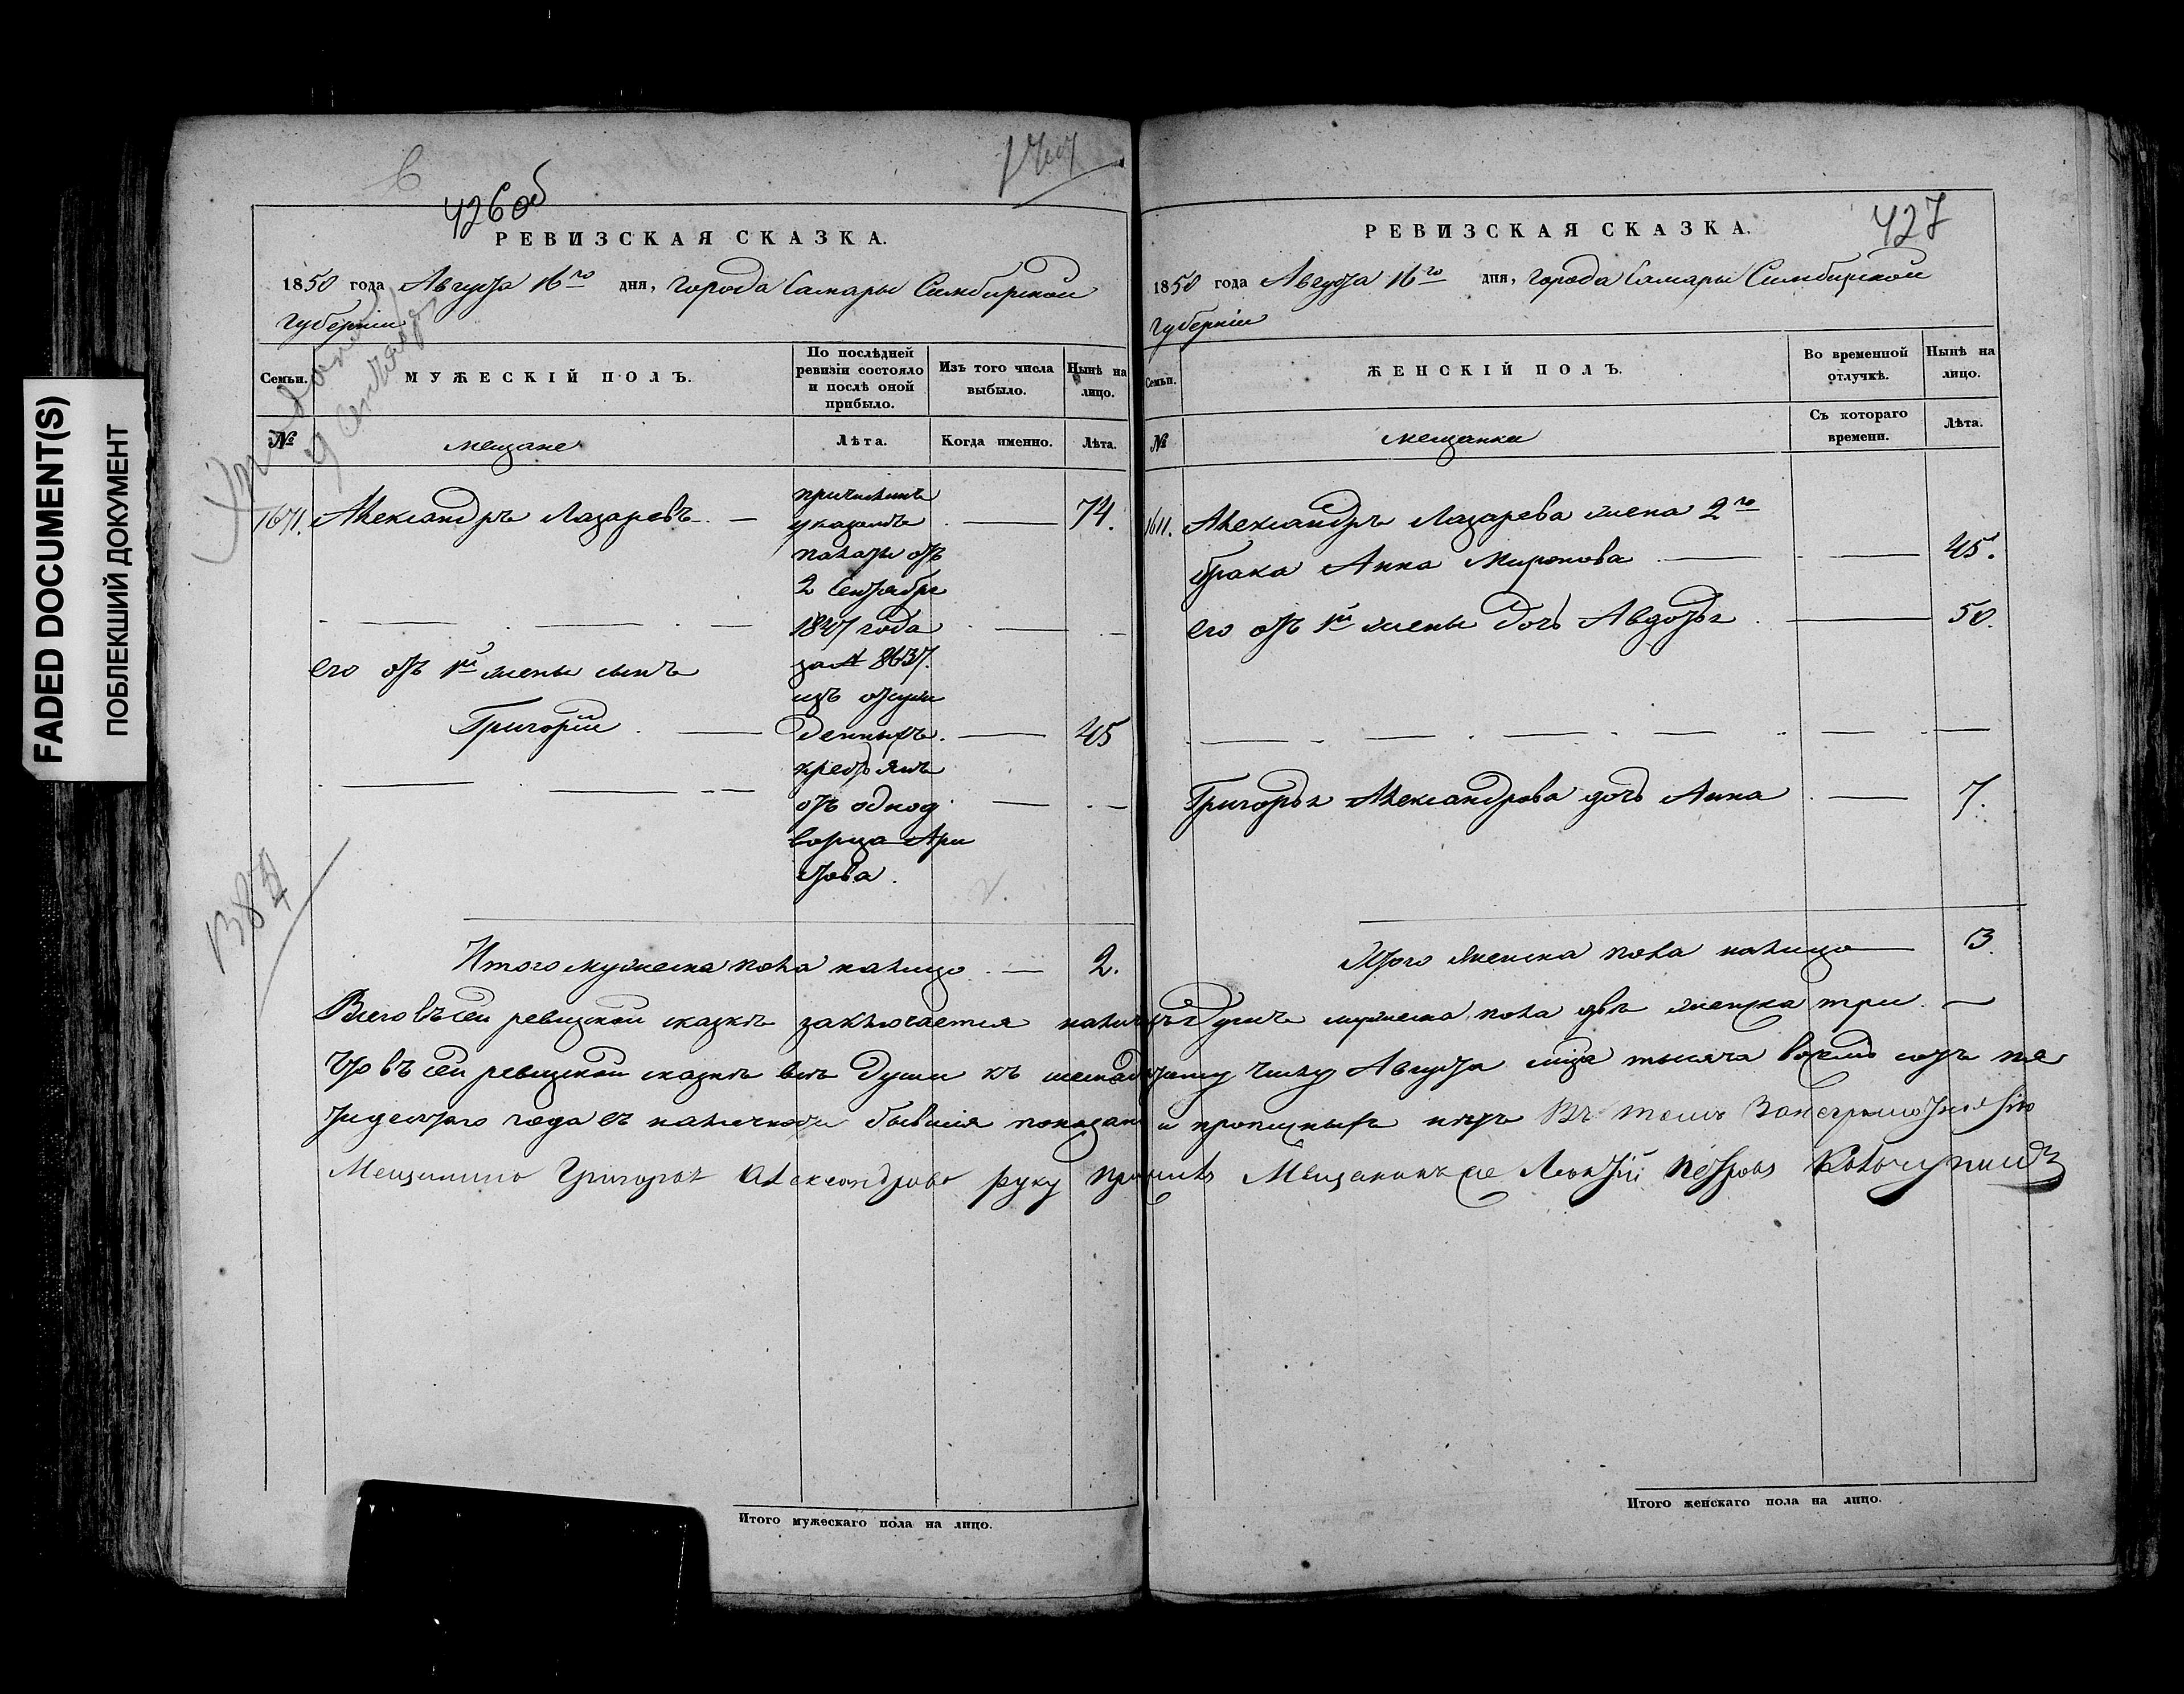 FADED DOCUMENT(S)
ПОБЛЕКШИЙ ДОКУМЕНТ
426об
РЕВИЗСКАЯ СКАЗКА.
1850 года Августа 16го дня, города Самары Симбирской
губерніи
Семьи.
МУЖЕСКІЙ ПОЛЪ.
По послѣдней ревизіи состояло и послѣ оной прибыло.
Изъ того числа выбыло.
Нынѣ на лицо.
№
мещане
Лѣта.
Когда именно.
Лѣта.
1671. Александръ Лазаревъ. — 74.
причислинъ
указомъ
палаты отъ
2 Сентября
1847 года
за № 8637.
изъ отсуж
денныхъ
крестьянъ
отъ однод
ворца Ари
стова.
его отъ 1й жены сынъ
Григорій. — 45
Итого мужеска пола налицо — 2.
427
РЕВИЗСКАЯ СКАЗКА.
1850 года Августа 16го дня, города Самары Симбирской
губерніи
Семьи.
ЖЕНСКІЙ ПОЛЪ.
Во временной отлучкѣ.
Нынѣ на лицо.
№
мещанки
Съ котораго времени.
Лѣта.
1611. Александра Лазарева жена 2го
брака Анна Миронова — 45.
его отъ 1й жены дочь Авдотья — 50.
Григорья Александрова дочь Анна — 7.
Итого женска пола налицо — 3.
Всего въ сей ревизской сказкѣ заключается наличныхъ душъ мужеска пола двѣ женска три. —
Что въ сей ревизской сказкѣ всѣ души къ шестнадцатому числу Августа мца тысяча восемь сотъ пя
тидесятаго года въ наличности бывшія показаны и прописныхъ нѣтъ Въ томъ
Мещанина Григорья Александрова руку приложилъ Мещанинъ Леонтій Петровъ
Итого мужескаго пола на лицо.
Итого женскаго пола на лицо.